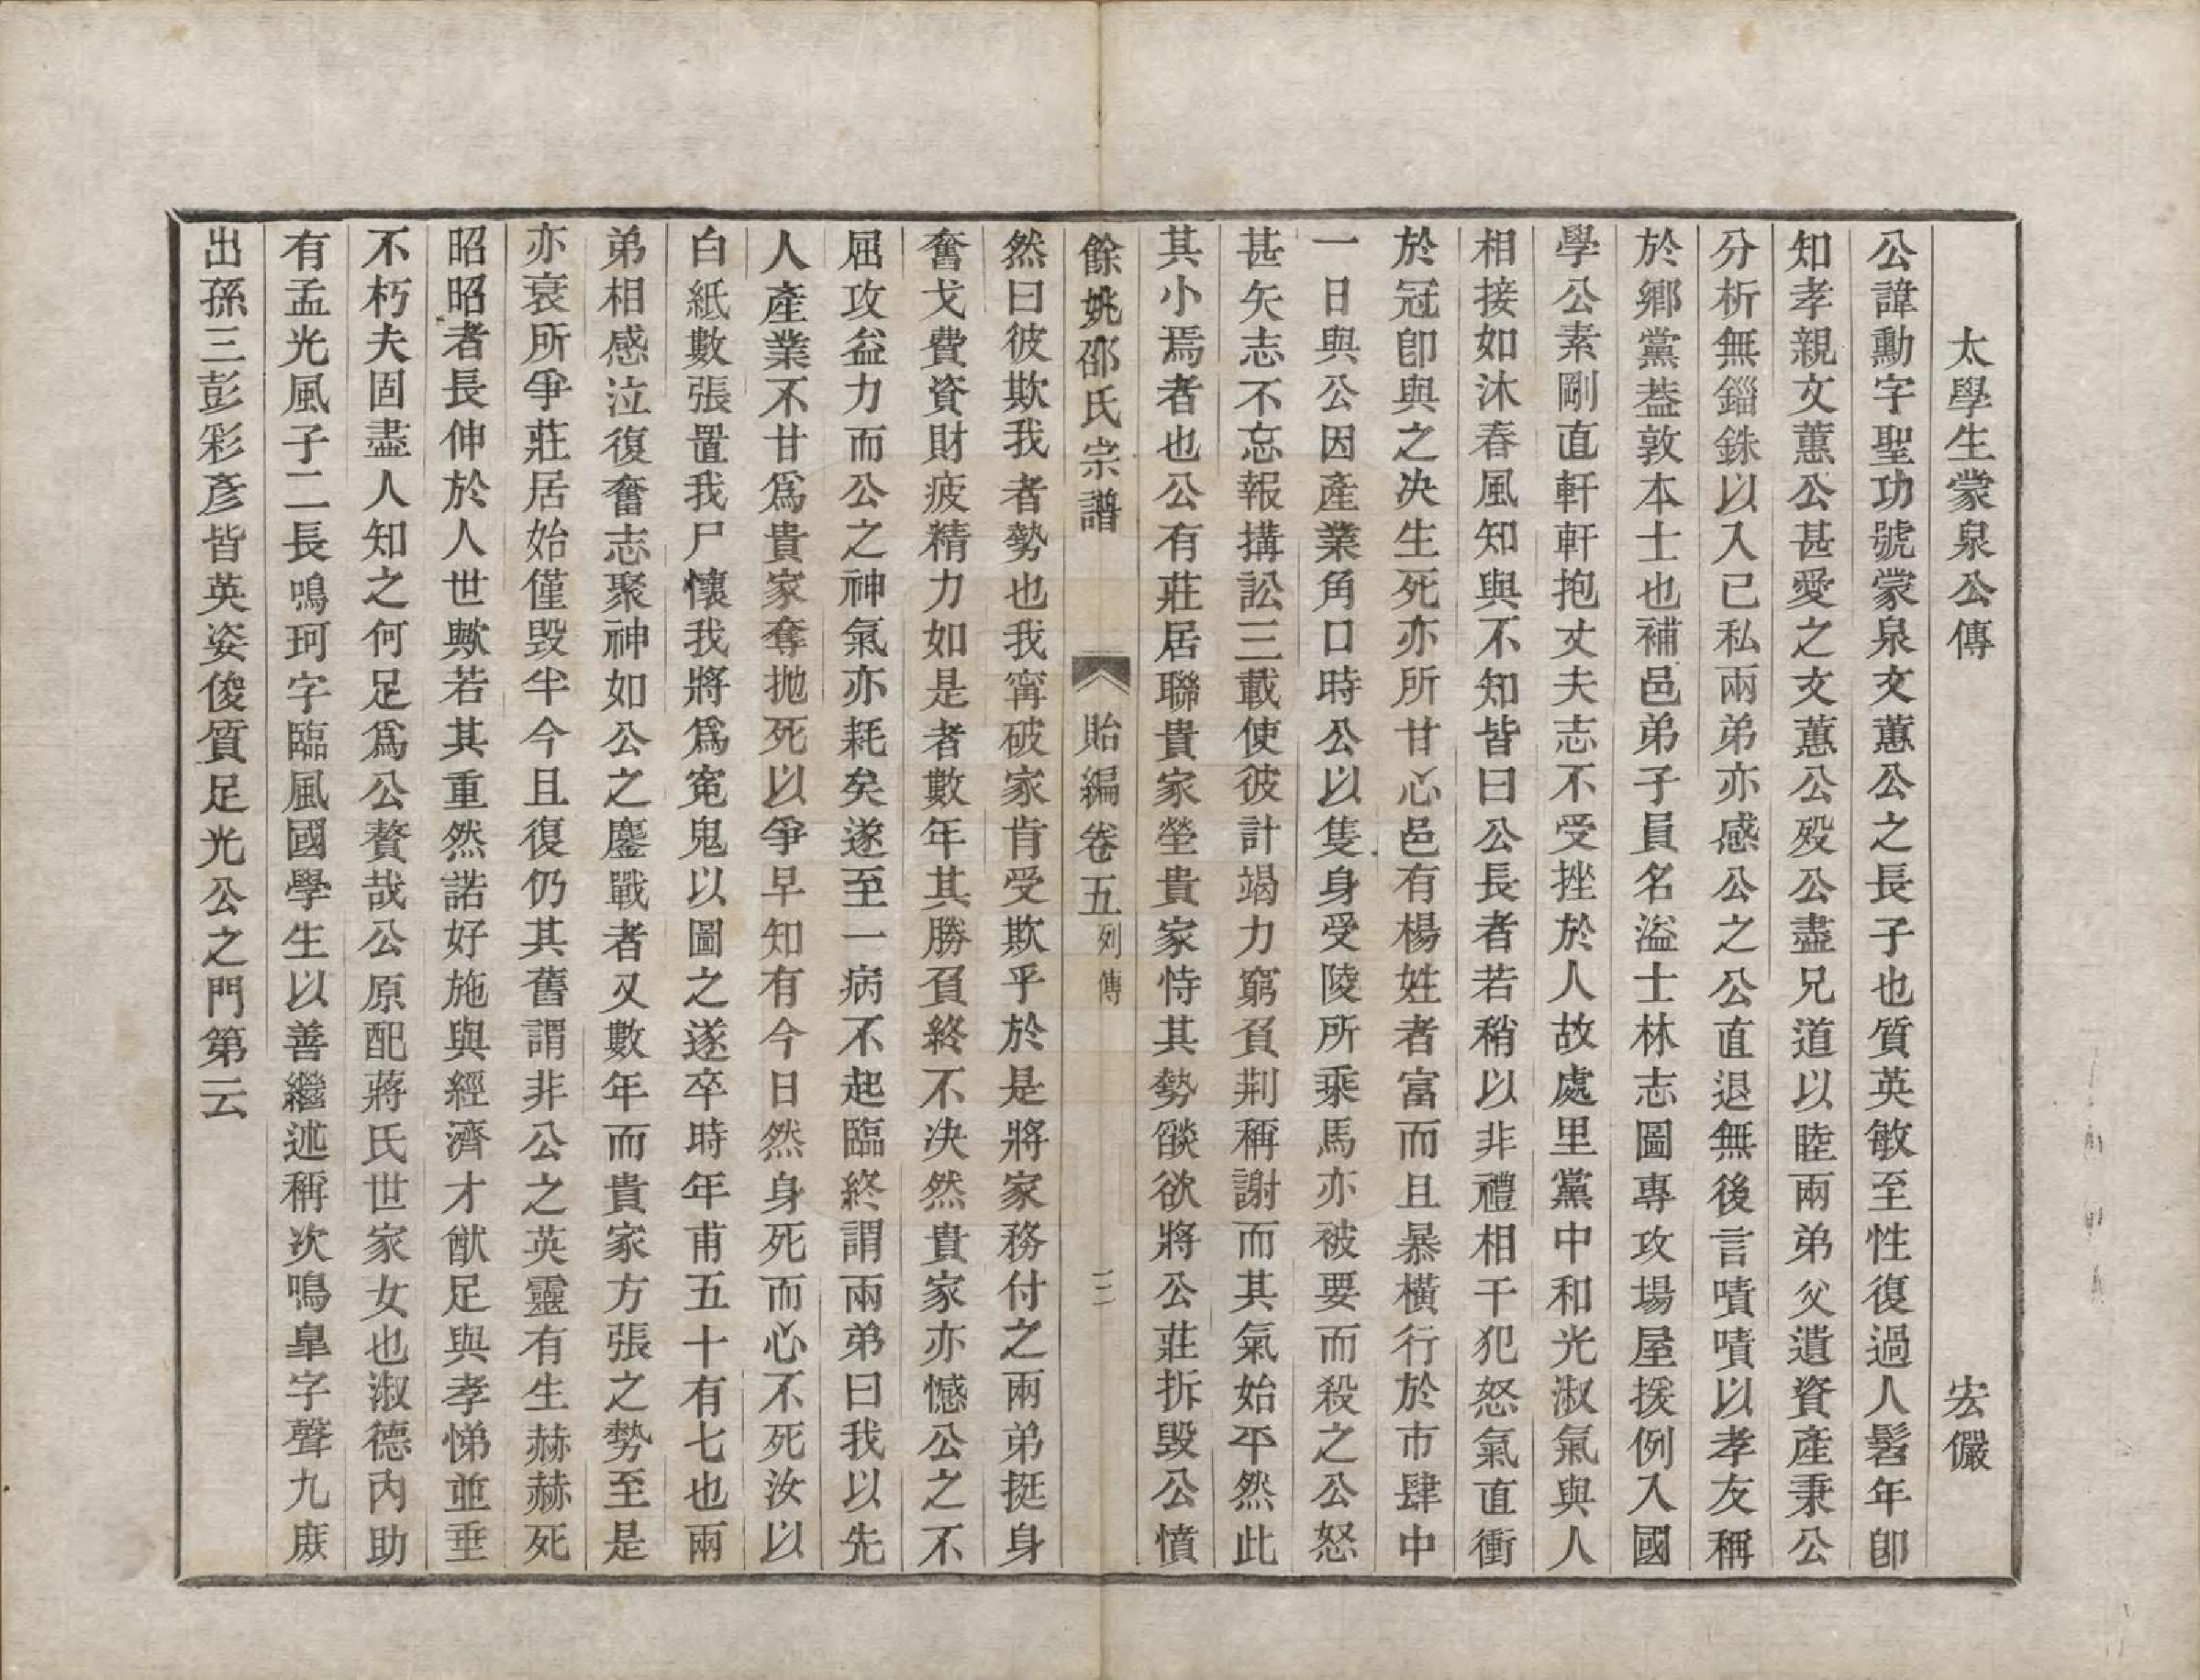 太學生蒙泉公傳　宏儼
公諱勳字聖功號蒙泉文蕙公之長子也質英敏至性復過人髫年卽
知孝親文蕙公甚愛之文蕙公歿公盡兄道以睦兩弟父遺資產秉公
分析無錙銖以入已私兩弟亦感公之公直退無後言嘖嘖以孝友稱
於鄉黨葢敦本士也補邑弟子員名溢士林志圖專攻場屋援例入國
學公素剛直軒軒抱丈夫志不受挫於人故處里黨中和光淑氣與人
相接如沐春風知與不知皆曰公長者若稍以非禮相干犯怒氣直衝
於冠卽與之决生死亦所甘心邑有楊姓者富而且暴橫行於市肆中
一日與公因產業角口時公以隻身受陵所乘馬亦被要而殺之公怒
甚矢志不忘報搆訟三載使彼計竭力窮負荆稱謝而其氣始平然此
其小焉者也公有莊居聯貴家塋貴家恃其勢燄欲將公莊拆毀公憤
餘姚邵氏宗譜　貽編卷五列傳　三
然曰彼欺我者勢也我寗破家肯受欺乎於是將家務付之兩弟挺身
奮戈費資財疲精力如是者數年其勝負終不决然貴家亦憾公之不
屈攻益力而公之神氣亦耗矣遂至一病不起臨終謂兩弟曰我以先
人產業不甘爲貴家奪拋死以爭早知有今日然身死而心不死汝以
白紙數張置我尸懷我將爲寃鬼以圖之遂卒時年甫五十有七也兩
弟相感泣復奮志聚神如公之鏖戰者又數年而貴家方張之勢至是
亦衰所爭莊居始僅毀半今且復仍其舊謂非公之英靈有生赫赫死
昭昭者長伸於人世歟若其重然諾好施與經濟才猷足與孝悌並垂
不朽夫固盡人知之何足爲公贅哉公原配蔣氏世家女也淑德内助
有孟光風子二長鳴珂字臨風國學生以善繼述稱次鳴臯字聲九庶
出孫三彭彩彥皆英姿俊質足光公之門第云